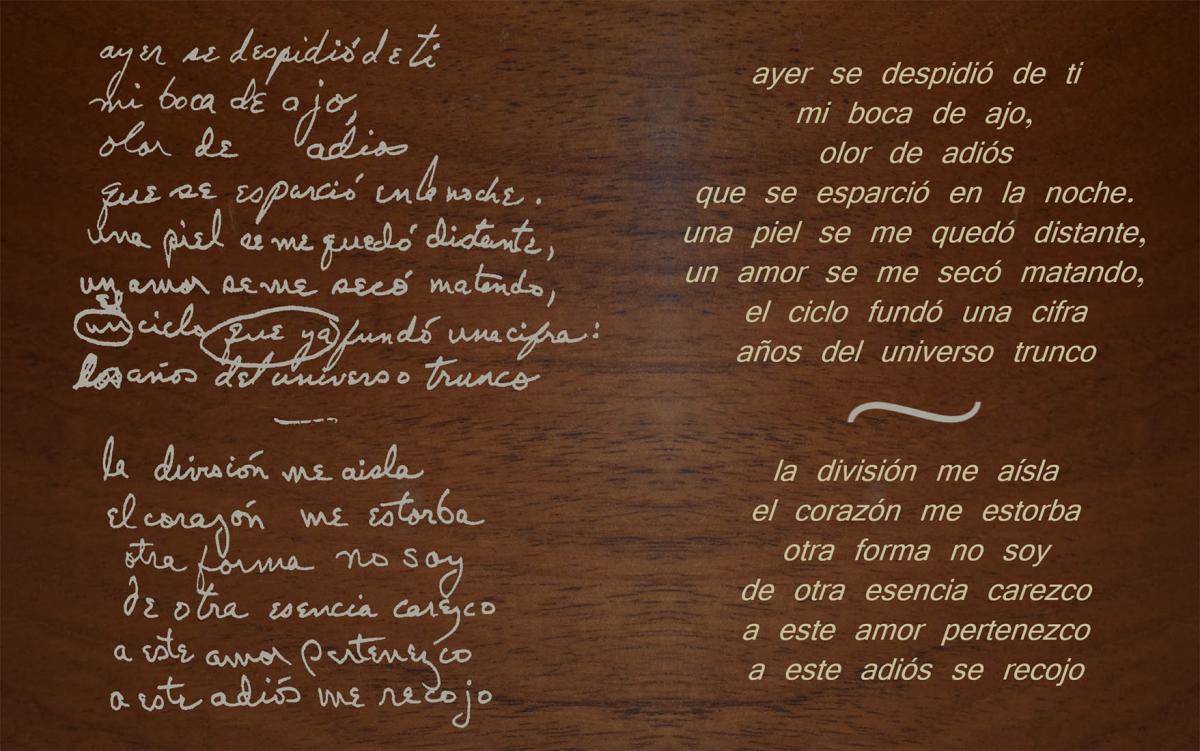 ayer se despidió de ti
mi boca de ajo,
olor de adiós
que se esparció en la noche.
una piel se me quedó distante,
un amor se me secó matando,
el
un ciclo que ya fundó una cifra:
los años del universo trunco
la división me aisla
el corazón me estorba
otra forma no soy
de otra esencia carezco
a este amor pertenezco
a este adiós me recojo
ayer se despidió de ti
mi boca de ajo,
olor de adiós
que se esparció en la noche.
una piel se me quedó distante,
un amor se me secó matando,
el ciclo fundó una cifra
años del universo trunco
la división me aísla
el corazón me estorba
otra forma no soy
de otra esencia carezco
a este amor pertenezco
a este adiós se recojo